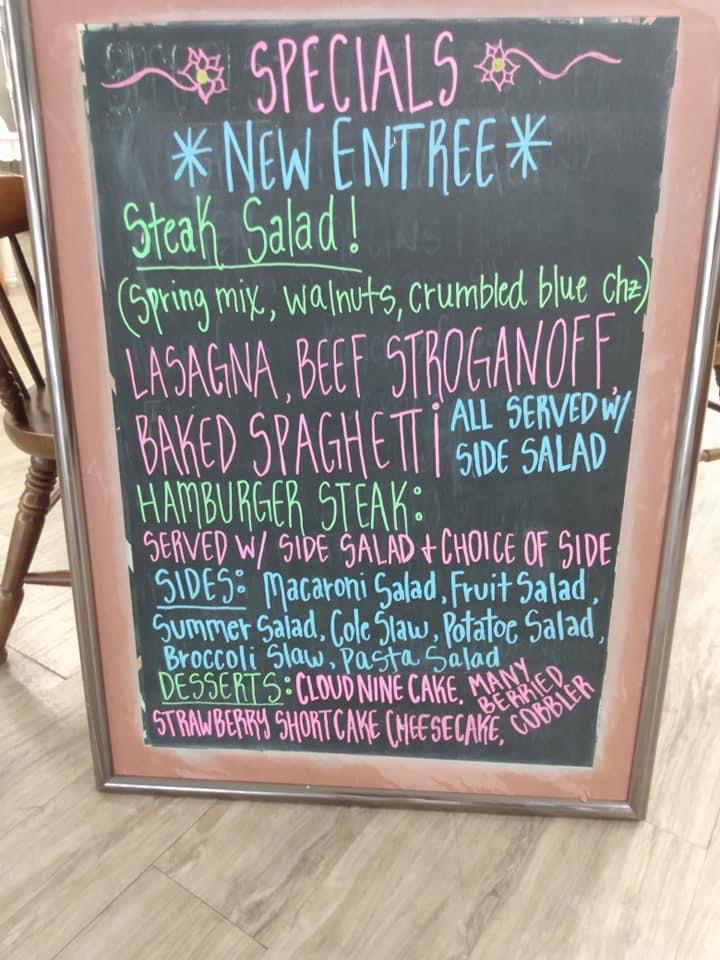 SPECIALS
*NEW ENTREE*
Steak Salad!
(Spring mix, walnuts, crumbled blue chz)
LASAGNA, BEEF STROGANOFF,
BAKED SPAGHETTi ALL SERVED W/
SIDE SALAD
HAMBURGER STEAK:
SERVED W/ SIDE SALAD + CHOICE OF SIDE
SIDES: Macaroni Salad, Fruit Salad,
Summer Salad, Cole Slaw, Potatoe Salad,
Broccoli Slaw, Pasta Salad
DESSERTS: CLOUD NINE CAKE, MANY
BERRIED
COBBLER
STRAWBERRY SHORTCAKE CHEESECAKE,